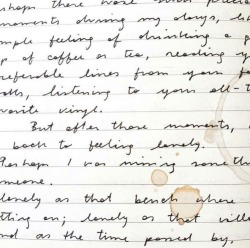 perhaps there were such
moments during my days, 
simple feeling of drinking a
up of coffee or tea, reading
referable lines from your
oks, listening to your all-t
vorite vinyl.
But after those moments,
back to feeling lonely.
Perhaps I was missing someth
omeone.
lonely as that bench where
tting on; lonely as that
nd as the time passed by,